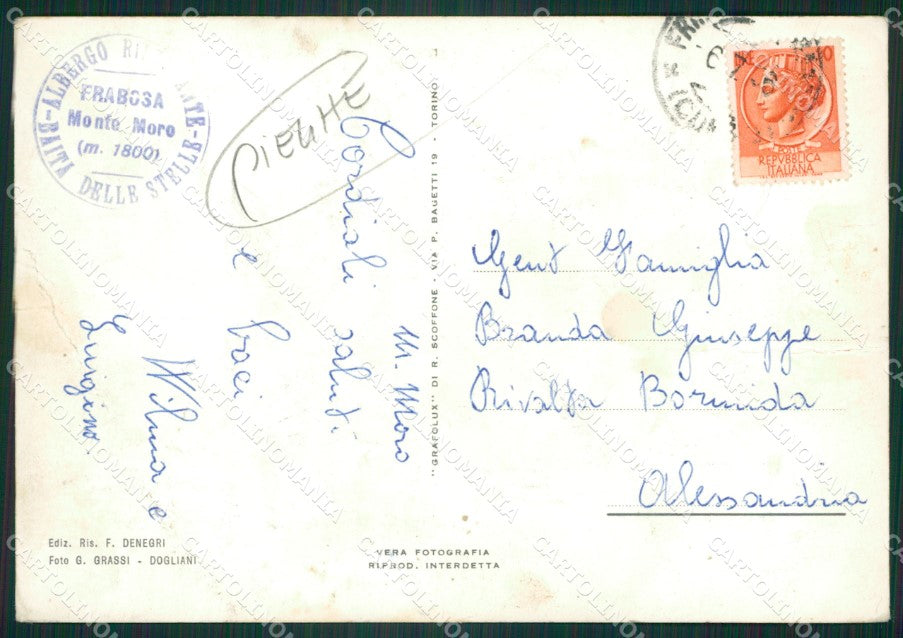 ALBERGO RISTORANTE
FRABOSA
Monte Moro
(m. 1800)
BAITA DELLE STELLE
PIEGHE
Cordiali saluti
e baci
Wilma e
Luigino
M. Moro
"GRAFOLUX" DI R. SCOFFONE - VIA P. BAGETTI 19 - TORINO
POSTE
REPVBBLICA
ITALIANA
Gent Famiglia
Branda Giuseppe
Rivalta Bormida
Alessandria
Ediz. Ris. F. DENEGRI
Foto G. GRASSI - DOGLIANI
VERA FOTOGRAFIA
RIPROD. INTERDETTA
CARTOLINOMANIA